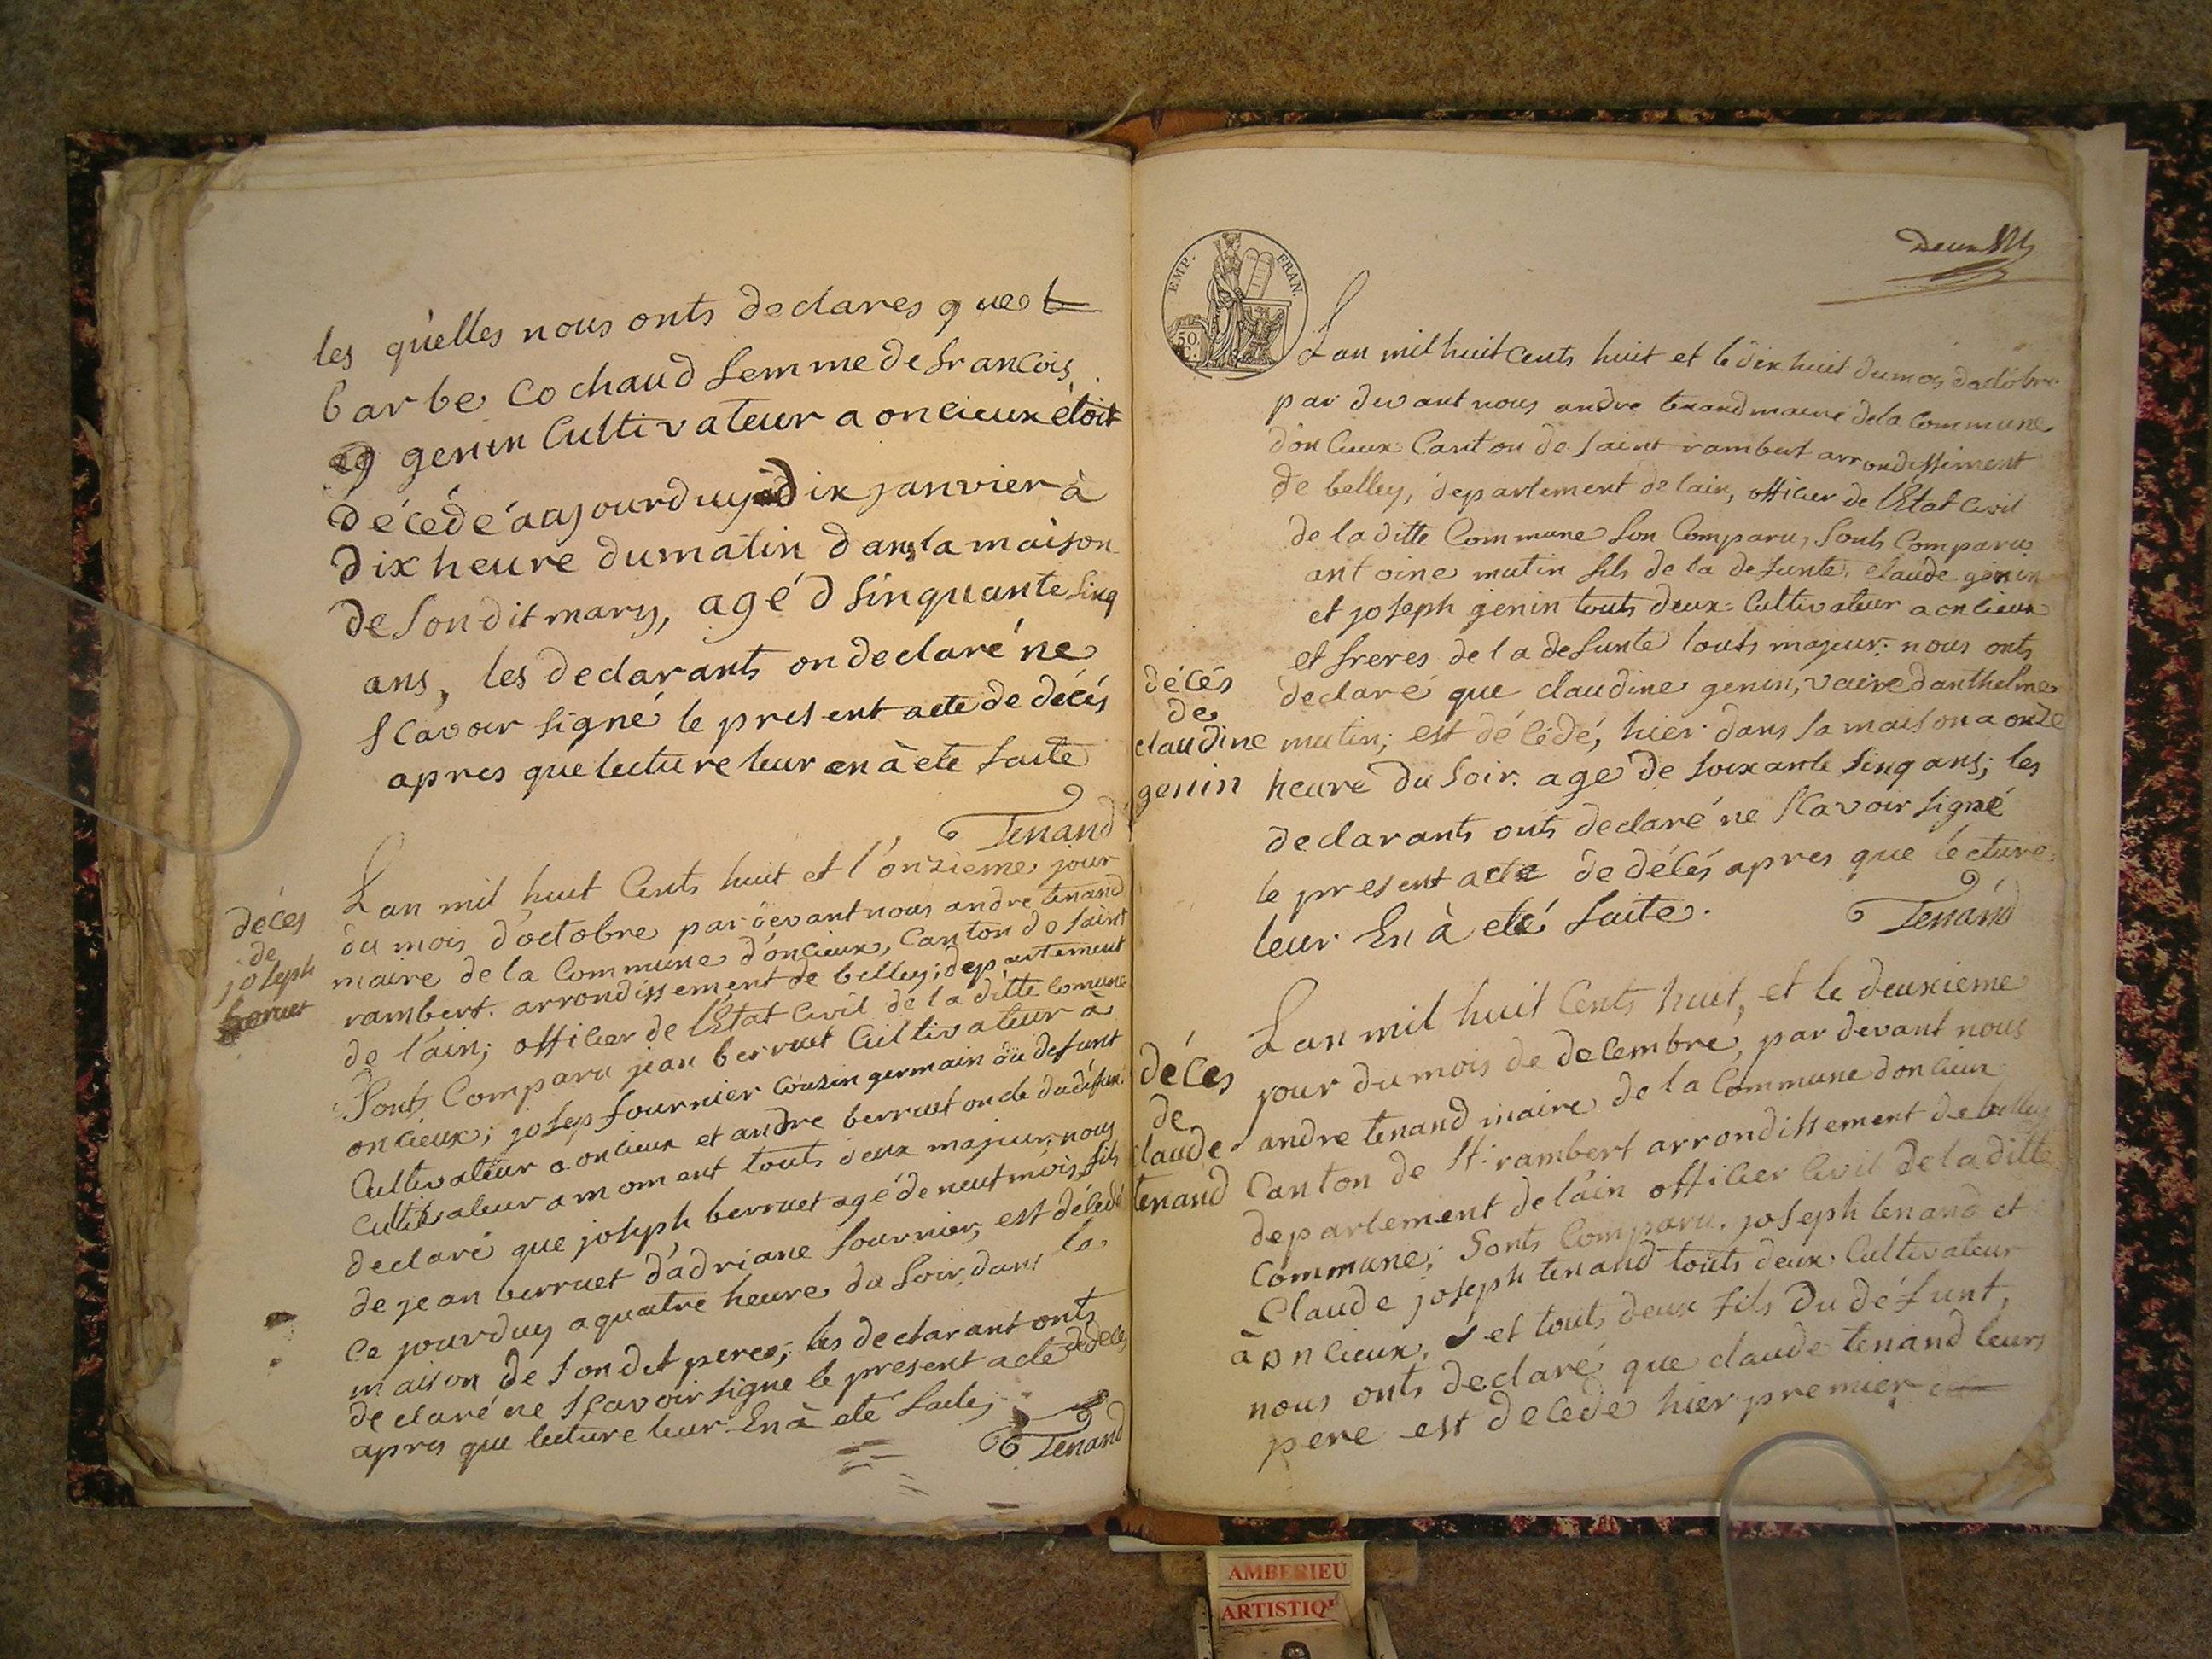 les qu'elles nous onts declares que
barbe Cochaud femme de francois
genin Cultivateur a oncieux étoit
décédé aujourduy dix janvier à
dix heure du matin dans la maison
de son dit mary, agé d sinquante sinq
ans, les declarants on declaré ne
scavoir signé le present acte de décés
apres que lecture leur en à eté faite
Tenand
décés
de
joseph
berruet
Lan mil huit Cents huit et l'onzieme jour
du mois d'octobre par devant nous andre tenand
maire de la Commune d'oncieux, Canton de saint
rambert. arrondissement de belley; departement
de l'ain; officier de l'Etat Civil de la ditte Comune
Sonts Comparu jean berruet Cultivateur à
oncieux; josep fournier Couzin germain du defunt
Cultivateur a oncieux et andre berruet oncle du défunt
Cultivateur a moment touts deux majeur, nous
declaré que joseph berruet agé de neuf mois, fils
de jean berruet d'adriane fournier, est décedé
Ce jourduy a quatre heure du soir, dans la
maison de son dit pere; les declarant onts
declaré ne scavoir signe le present acte de deces
apres que lecture leur En à eté faite,
Tenand
EMP. FRAN.
50
C.
Lan mil huit Cents huit et le dix huit du mois d'actobre
par devant nous andre tenand maire de la Commune
d'oncieux Canton de saint rambert arrondissiment
de belley, departement de lain, officier de l'Etat Civil
de la ditte Commune son Comparu, sonts Comparu
antoine mutin fils de la defunte, claude genin
et joseph genin touts deux Cultivateur a oncieux
et freres de la defunte touts majeur. nous onts
décés
de
claudine
genin
declaré que claudine genin, veuve d'anthelme
mutin; est décédé, hier dans sa maison a onze
heure du soir. age de soixante sinq ans; les
declarants onts declaré ne scavoir signé
le present acte de décés apres que lecture
leur En à eté faite.
Tenand
décés
de
claude
tenand
Lan mil huit Cents huit, et le deuxieme
jour du mois de decembre, par devant nous
andre tenand maire de la Commune d'oncieux
Canton de St. rambert arrondissement de belley
departement de l'ain officier Civil de la ditte
Commune; Sonts Comparu. joseph tenand et
Claude joseph tenand touts deux Cultivateur
à oncieux, et touts deux fils du défunt,
nous onts declaré que claude tenand leurs
pere est decede hier premier
AMBERIEU
ARTISTIQ'